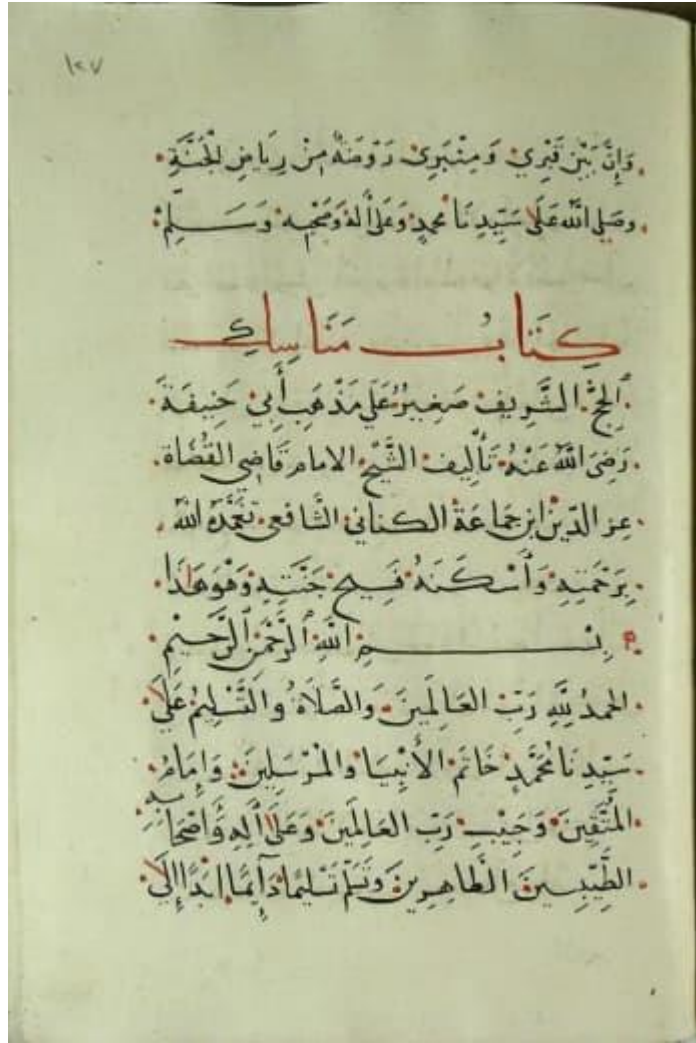 ١٢٧
وَإِنَّ بَيْنَ قَبْرِي وَمِنْبَرِي رَوْضَةٌ مِنْ رِيَاضِ الْجَنَّةِ
وصَلى اللّٰه عَلَى سَيِّدِنَا محمدٍ وَعَلَى أله وَصَحْبِه وَسَلِّمْ
كِتَابُ مَنَاسِكِ
الحَجِّ الشَّرِيف صَغِيرٌ عَلَى مَذْهَبِ أَبِي حَنِيفَةَ
رَضِيَ اللّٰهُ عَنْهُ تَأْلِيف الشَّيْخ الامام قَاضِي القُضَاة
عز الدِّين ابن جمَاعَة الكناني الشَّافعي تَغَمَّدَهُ اللّٰه
بِرَحْمَتِهِ وَأَسْكَنَهُ فَسِيحَ جَنَّتِهِ وَهْوَ هَاذَا
بِسْمِ اللّٰهِ الرَّحْمٰنِ الرَّحِيمِ
الحمدُ لِلّٰهِ رَبِّ العَالَمِينَ وَالصَّلَاةُ وَالتَّسْلِيمُ عَلَى
سَيِّدِنَا مُحَمَّدٍ خَاتَمِ الأَنْبِيَا وَالْمُرْسَلِينَ وَإِمَامُ
المُتَّقِينَ وَحَبِيبِ رَبِّ العَالَمِينَ وَعَلَى آلِهِ وَأَصْحَابِهِ
الطَّيِّبِينَ الطَّاهِرِينَ وَسَلَّمَ تَسْلِيمًا دَآئِمًا ابَدًا إِلَى